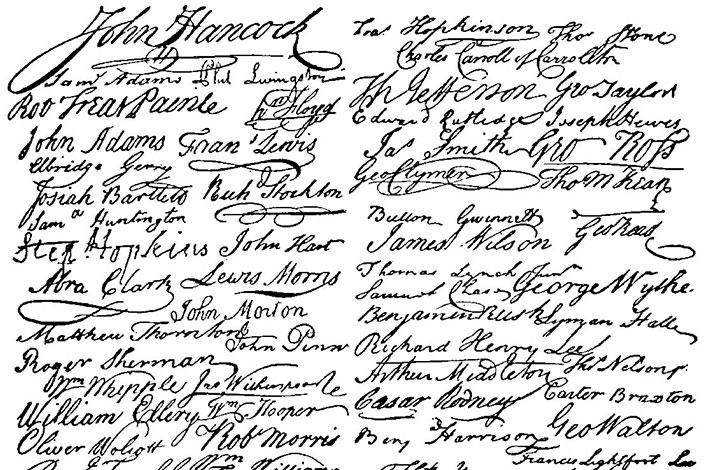 John Hancock
Saml Adams Phil Livingston
Rob Treat Paine Wm Floyd
John Adams Frans Lewis
Elbridge Gerry
Josiah Bartlett Richd Stockton
Saml Huntington
Step Hopkins John Hart
Abra Clark Lewis Morris
John Morton
Matthew Thornton
John Penn
Roger Sherman
Wm Whipple Jno Witherspoon
William Ellery Wm Hooper
Oliver Wolcott Robt Morris
Wm Williams
Fras Hopkinson Thos Stone
Charles Carroll of Carrollton
Th Jefferson Geo Taylor
Edward Rutledge Joseph Hewes
Jas Smith Geo Ross
Geo Clymer Tho M Kean
Button Gwinnett
James Wilson Geo Read
Thomas Lynch Junr
Samuel Chase George Wythe
Benjamin Rush Lyman Hall
Richard Henry Lee
Arthur Middleton Thos Nelson jr
Cæsar Rodney Carter Braxton
Benj Harrison Geo Walton
Francis Lightfoot Lee